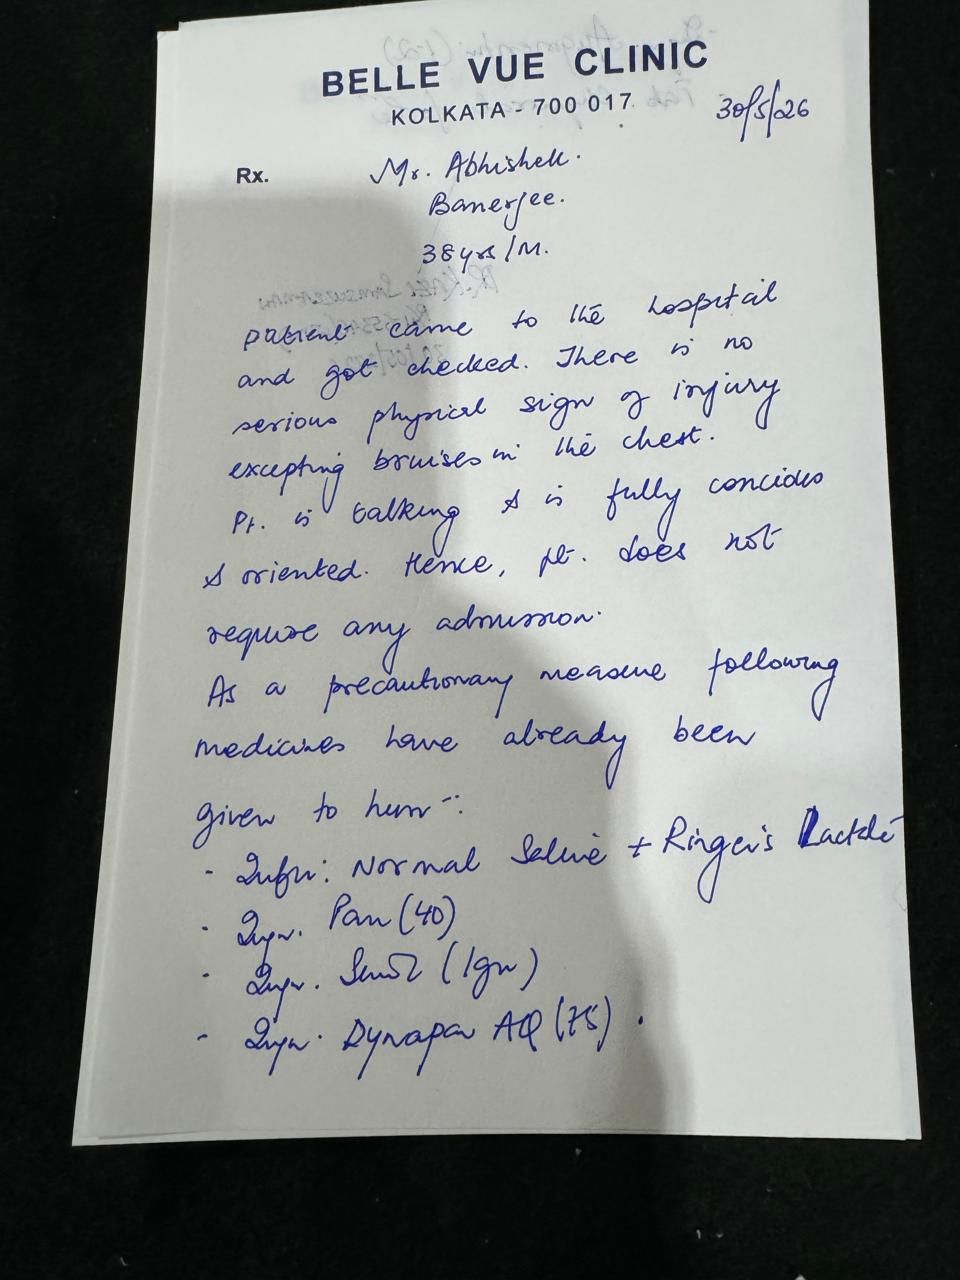 BELLE VUE CLINIC
KOLKATA - 700 017.
30/5/26
Rx.
Mr. Abhishek.
Banerjee.
38yrs/M.
patient came to the hospital
and got checked. There is no
serious physical sign of injury
excepting bruises in the chest.
Pt. is talking & is fully concious
& oriented. Hence, pt. does not
require any admission.
As a precautionary measure following
medicines have already been
given to him -:
- Infn: Normal Saline + Ringer's Lactate
- Inj. Pan (40)
- Inj. (1gm)
- Inj. Dynapar AQ (75).